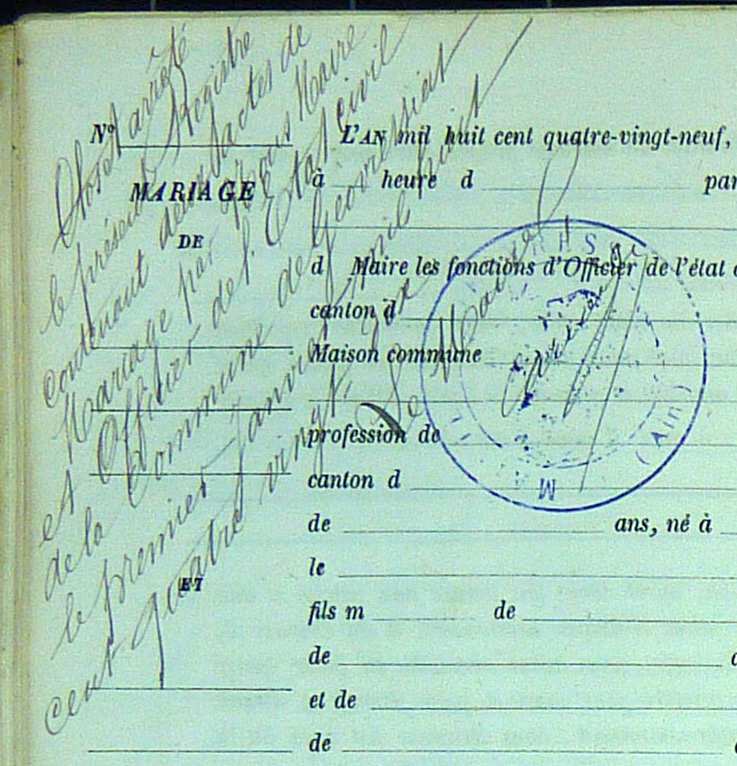 Clos et arrêté
le présent Registre
contenant deux actes de
Mariage par Nous Maire
et Officier de l'Etat civil
de la Commune de Géovressiat
le premier Janvier mil huit
cent quatre vingt-dix
Le Maire
N°
MARIAGE
DE
ET
L'AN mil huit cent quatre-vingt-neuf,
à heure d par
d Maire les fonctions d'Officier de l'état
canton d
Maison commune
profession de
canton d
de ans, né à
le
fils m de
de
et de
de
(Ain)